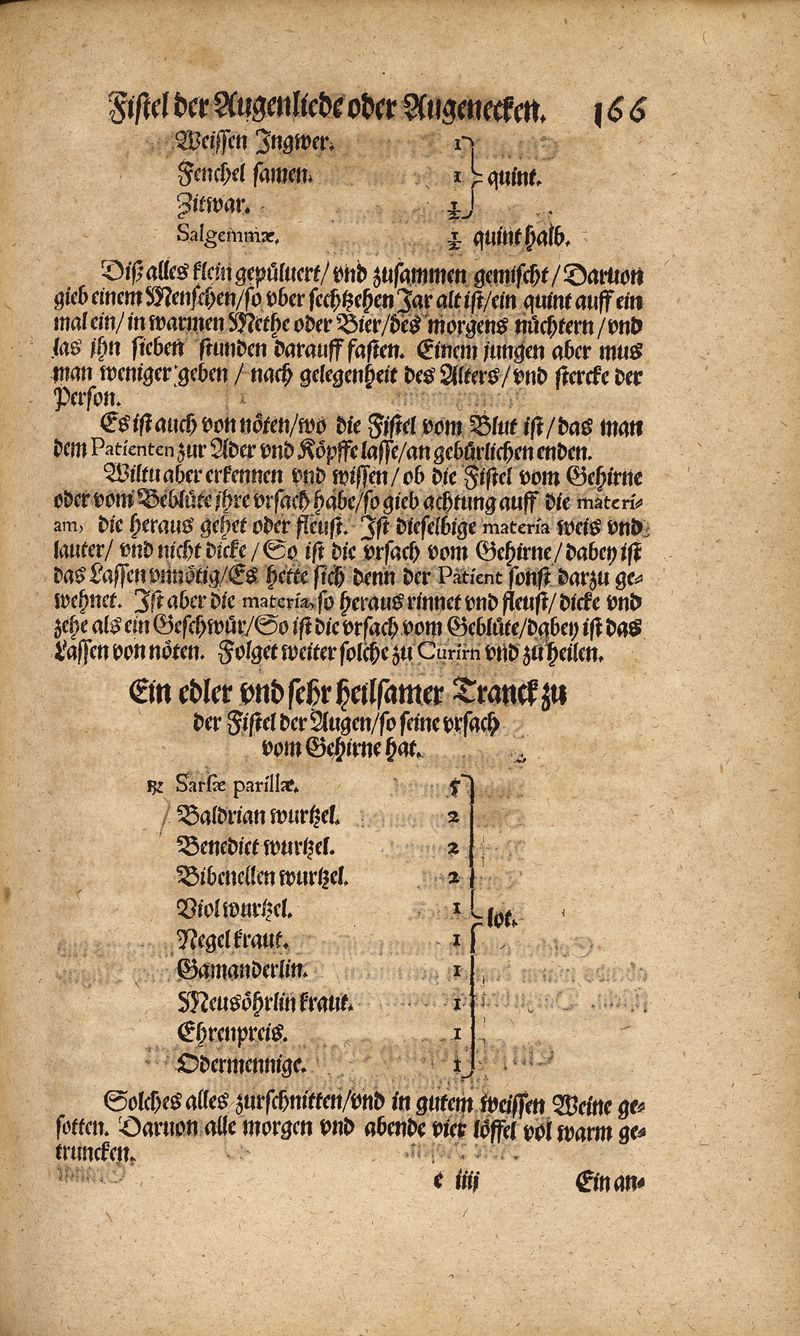 Fistel der Augenliede oder Augenecken. 166
Weissen Ingwer. 1
Fenchel samen. 1 quint.
Zitwar. ½
Salgemmæ. ½ quint halb.
Diß alles klein gepůluert/ vnd zusammen gemischt/ Daruon
gieb einem Menschen/ so vber sechtzehen Jar alt ist/ ein quint auff ein
mal ein/ in warmen Methe oder Bier/ des morgens nüchtern/ vnd
las jhn sieben stunden darauff fasten. Einem jungen aber mus
man weniger geben/ nach gelegenheit des Alters/ vnd stercke der
Person.
Es ist auch von nöten/ wo die Fistel vom Blut ist/ das man
dem Patienten zur Ader vnd Köpffe lasse/ an gebürlichen enden.
Wiltu aber erkennen vnd wissen/ ob die Fistel vom Gehirne
oder vom Beblüte jhre vrsach habe/ so gieb achtung auff die materi⸗
am, die heraus gehet oder fleust. Ist dieselbige materia weis vnd
lauter/ vnd nicht dicke/ So ist die vrsach vom Gehirne/ dabey ist
das Lassen vnnötig/ Es hette sich denn der Patient sonst darzu ge⸗
wehnet. Ist aber die materia, so heraus rinnet vnd fleust/ dicke vnd
zehe als ein Geschwür/ So ist die vrsach vom Geblüte/ dabey ist das
Lassen von nöten. Folget weiter solche zu Curirn vnd zu heilen.
Ein edler vnd sehr heilsamer Tranck zu
der Fistel der Augen/ so seine vrsach
vom Gehirne hat.
℞ Sarsæ parillæ. 5
Baldrian wurtzel. 2
Benedict wurtzel. 2
Bibenellen wurtzel. 2
Viol wurtzel. 1 lot.
Negel kraut. 1
Gamanderlin. 1
Meusöhrlin kraut. 1
Ehrenpreis. 1
Odermennige. 1
Solches alles zurschnitten/ vnd in gutem weissen Weine ge⸗
sotten. Daruon alle morgen vnd abende vier löffel vol warm ge⸗
truncken.
e iiij Ein an⸗